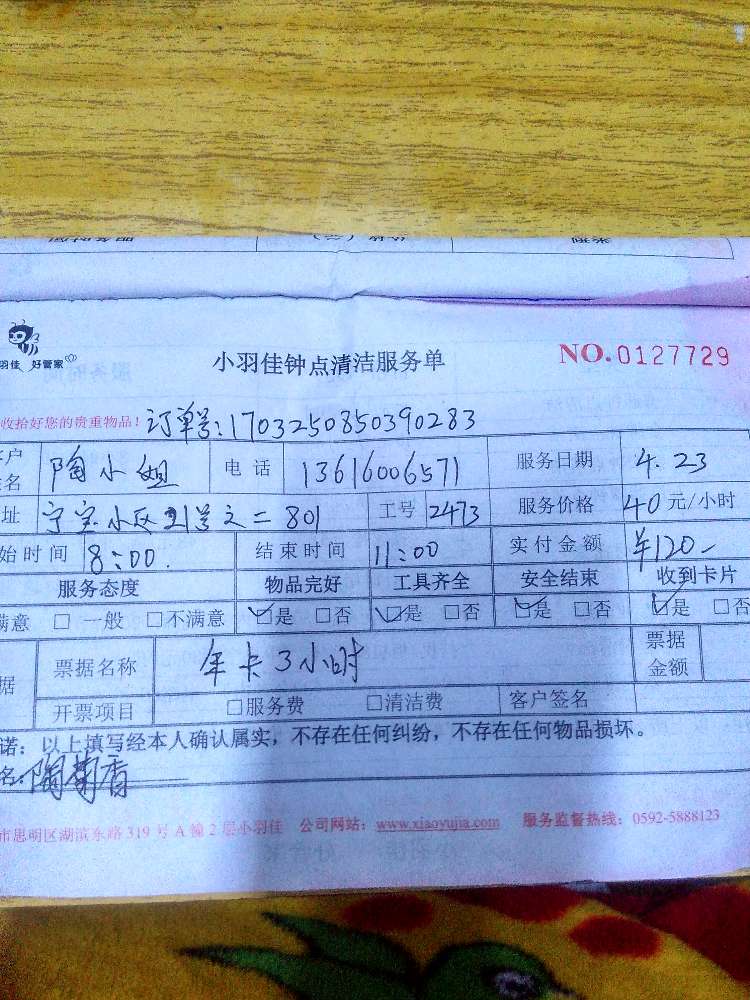 羽佳 好管家
小羽佳钟点清洁服务单 NO.0127729
收拾好您的贵重物品！ 订单号:1703250850390283
客户姓名 陶小姐 电话 13616006571 服务日期 4.23
址 宁宝小区21号之二801 工号 2473 服务价格 40元/小时
始时间 8:00. 结束时间 11:00 实付金额 ¥120-
服务态度 物品完好 工具齐全 安全结束 收到卡片
满意 □ 一般 □不满意 ☑是 □否 ☑是 □否 ☑是 □否 ☑是 □否
据 票据名称 年卡3小时 票据金额
开票项目 □服务费 □清洁费 客户签名
诺：以上填写经本人确认属实，不存在任何纠纷，不存在任何物品损坏。
名:陶菊香
市思明区湖滨东路319号A幢2层小羽佳 公司网站：www.xiaoyujia.com 服务监督热线：0592-5888123